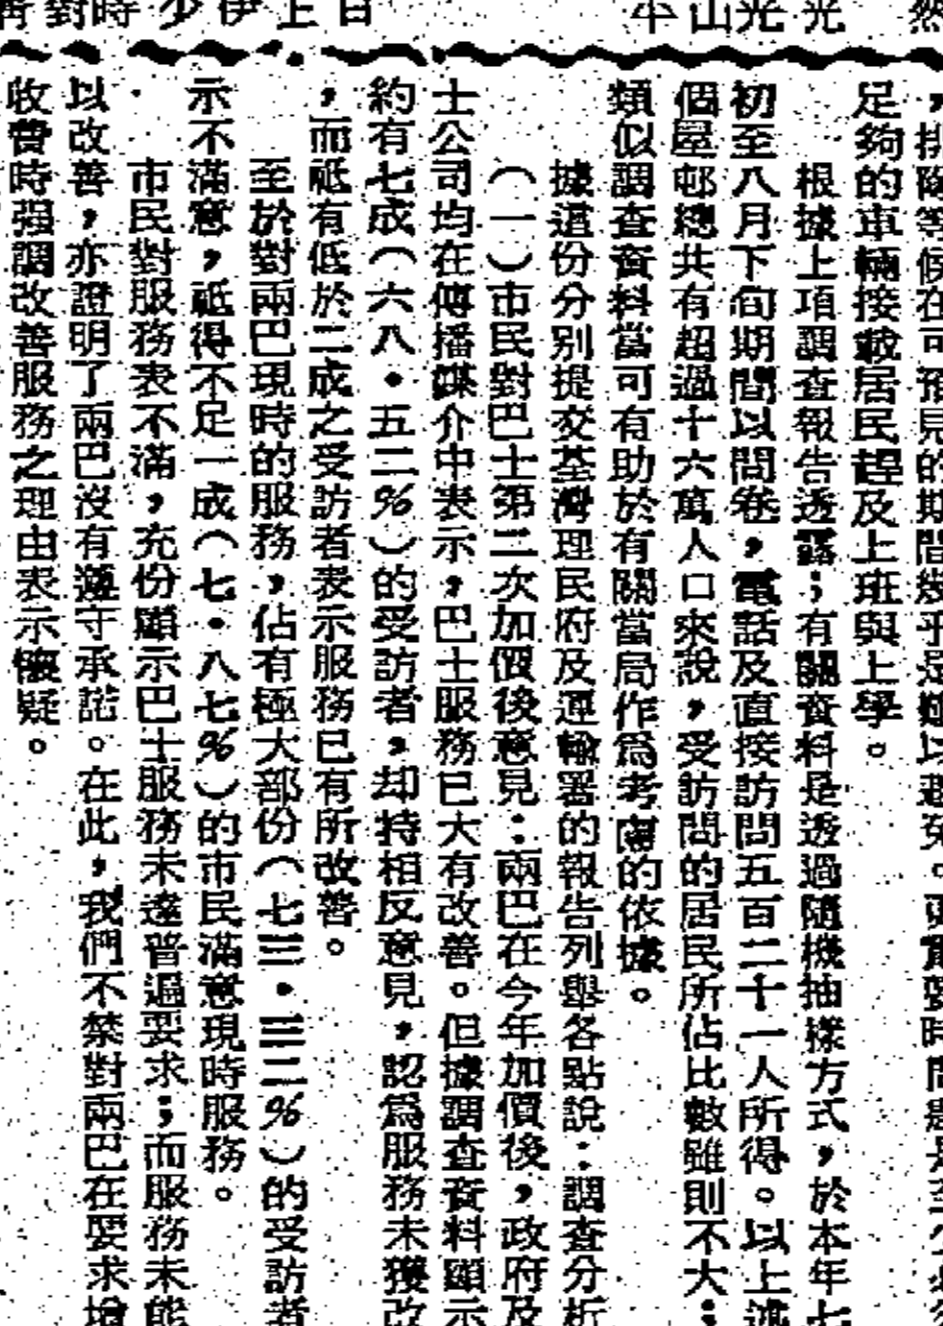 足夠的車輛接載居民趕及上班與上學。
根據上項調查報告透露；有關資料是透過隨機抽樣方式，於本年七
初至八月下旬期間以問卷，電話及直接訪問五百二十一人所得。以上述
個屋邨總共有超過十六萬人口來說，受訪問的居民所佔比數雖則不大；
類似調查資料當可有助於有關當局作為考慮的依據。
據這份分別提交荃灣理民府及運輸署的報告列舉各點說：調查分析
（一）市民對巴士第二次加價後意見：兩巴在今年加價後，政府及
士公司均在傳播媒介中表示，巴士服務已大有改善。但據調查資料顯示
約有七成（六八・五二％）的受訪者，却持相反意見，認為服務未獲改
，而祗有低於二成之受訪者表示服務已有所改善。
至於對兩巴現時的服務，佔有極大部份（七三・三二％）的受訪者
示不滿意，祗得不足一成（七・八七％）的市民滿意現時服務。
市民對服務表不滿，充份顯示巴士服務未達普遍要求；而服務未能
以改善，亦證明了兩巴沒有遵守承諾。在此，我們不禁對兩巴在要求增
收費時强調改善服務之理由表示懷疑。